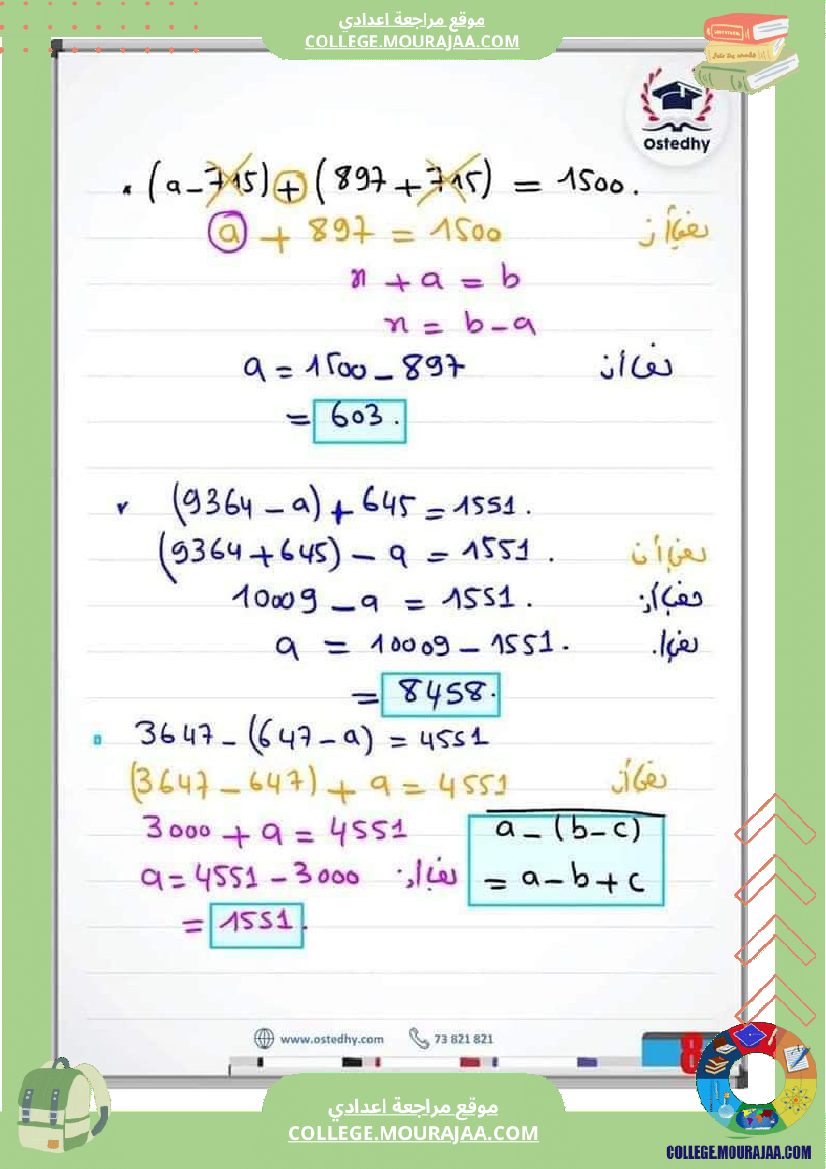 موقع مراجعة اعدادي
COLLEGE.MOURAJAA.COM
Ostedhy
(a - 715) + (897 + 715) = 1500.
a + 897 = 1500
x + a = b
x = b - a
a = 1500 - 897
= 603.
(9364 - a) + 645 = 1551.
(9364 + 645) - a = 1551.
10009 - a = 1551.
a = 10009 - 1551.
= 8458.
3647 - (647 - a) = 4551
(3647 - 647) + a = 4551
3000 + a = 4551
a - (b - c)
a = 4551 - 3000
= a - b + c
= 1551.
www.ostedhy.com 73 821 821
8
موقع مراجعة اعدادي
COLLEGE.MOURAJAA.COM
COLLEGE.MOURAJAA.COM